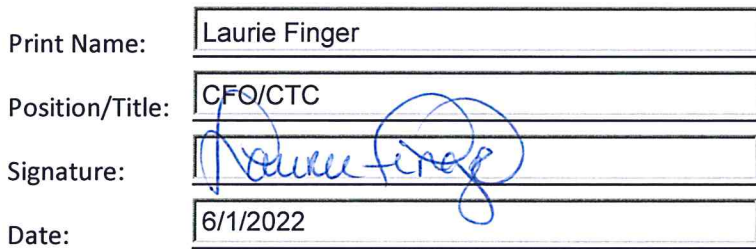 Print Name: Laurie Finger
Position/Title: CFO/CTC
Signature: Laurie Finger
Date: 6/1/2022